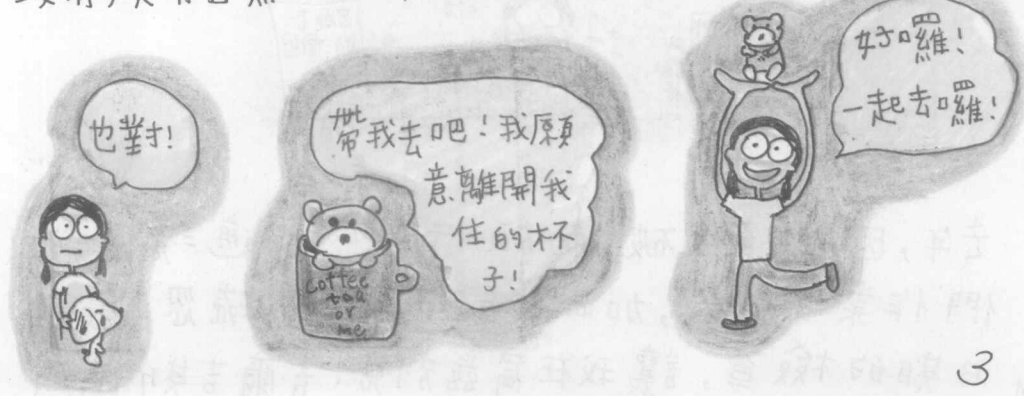 也對!
帶我去吧!我願
意離開我
住的杯
子!
Coffee
tea
or
me
好囉!
一起去囉!
3